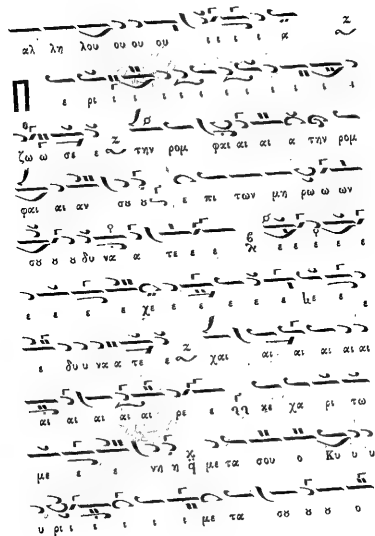 αλ λη λου ου ου ου ι ε ι ε α
Π ε ρι ι ι ι ι ι ι ι ι ι ι ι ι
ζω ω σε ε την ρομ φαι αι αι α την ρομ
φαι αι αν σου ου ε πι των μη ρω ω ων
σου ου ου δυ να α τε ε ε ε ε ε ε ε
ε ε ε ε χε ε ε ε ε ε ε με ε ε
ε δυ υ να α τε ε χαι αι αι αι αι
αι αι αι αι αι ρε ε κε χα ρι τω
με ε ε ε νη η με τα σου ο Κυ υ υ
υ ρι ι ι ι ι ι με τα σου ου ου ο